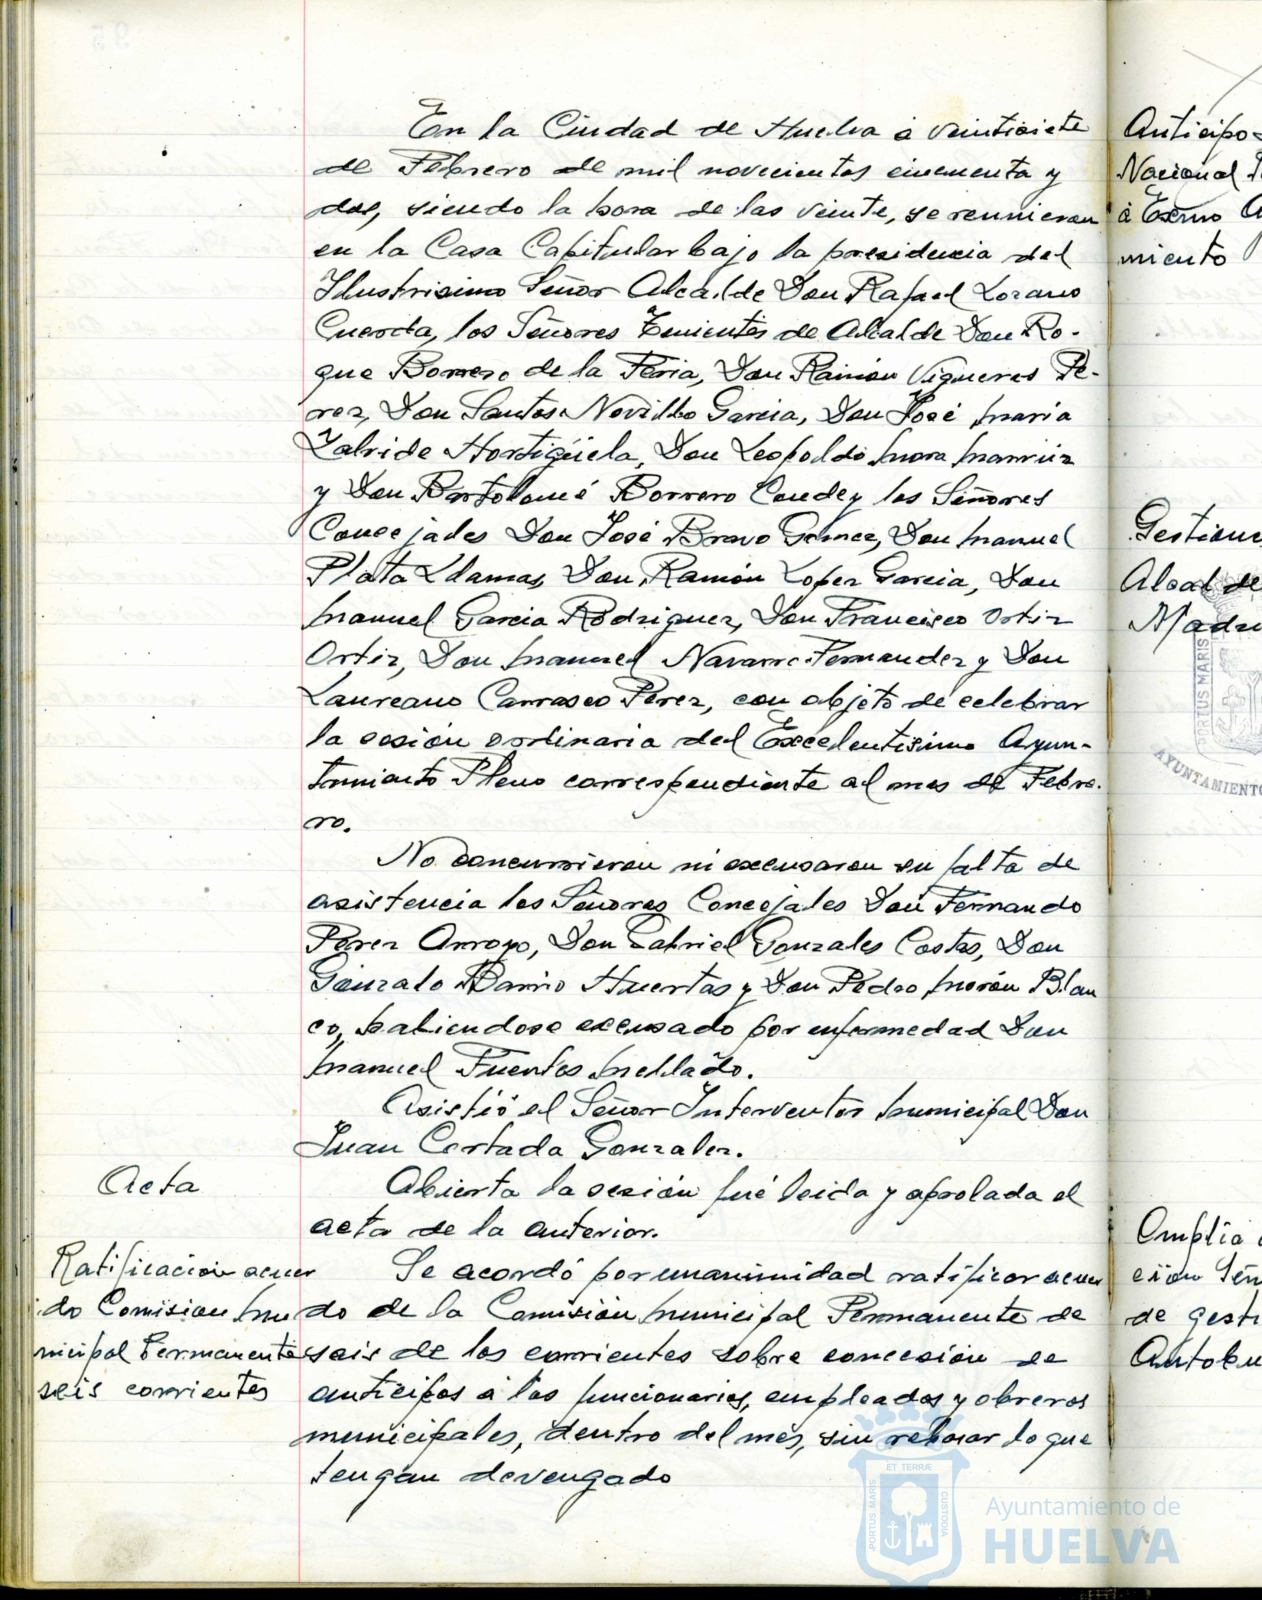 En la Ciudad de Huelva á veintisiete
de Febrero de mil novecientos cincuenta y
dos, siendo la hora de las veinte, se reunieron
en la Casa Capitular bajo la presidencia del
Ilustrisimo Señor Alcalde Don Rafael Lozano
Cuerda, los Señores Tenientes de Alcalde Don Ro-
que Borrero de la Feria, Don Ramón Vigueras Pe-
rez, Don Santos Novillo Garcia, Don José Maria
Zalvide Hortigüela, Don Leopoldo Mora
y Don Bartolomé Borrero Conde y los Señores
Concejales Don José Bravo Gómez, Don Manuel
Plata Llamas, Don Ramón Lopez Garcia, Don
Manuel Garcia Rodriguez, Don Francisco Ortiz
Ortiz, Don Manuel Navarro Fernandez y Don
Laureano Carrasco Perez, con objeto de celebrar
la sesión ordinaria del Excelentisimo Ayun-
tamiento Pleno correspondiente al mes de Febre-
ro.
No concurrieron ni excusaron su falta de
asistencia los Señores Concejales Don Fernando
Perez Arroyo, Don Gabriel Gonzales Costas, Don
Gonzalo Barrio Huertas y Don Pedro Morón Blan
co, habiendose excusado por enfermedad Don
Manuel Fuentes Mellado.
Asistió el Señor Interventor Municipal Don
Juan Certada Gonzalez.
Acta
Abierta la sesión fué leida y aprobada el
acta de la anterior.
Ratificación acuer
do Comision Mu
nicipal Permanente
seis corrientes
Se acordó por unanimidad ratificar acuer
do de la Comisión Municipal Permanente de
seis de los corrientes sobre concesión de
anticipos á los funcionarios, empleados y obreros
municipales, dentro del mes, sin rebasar lo que
tengan devengado
Anticipo
Nacional
á Excmo A
miento
Gestione
Alcalde
Madri
PORTUS MARIS
AYUNTAMIENTO
Amplia
ción Señ
de gesti
Autobu
ET TERRÆ
PORTUS MARIS
CUSTODIA
Ayuntamiento de
HUELVA